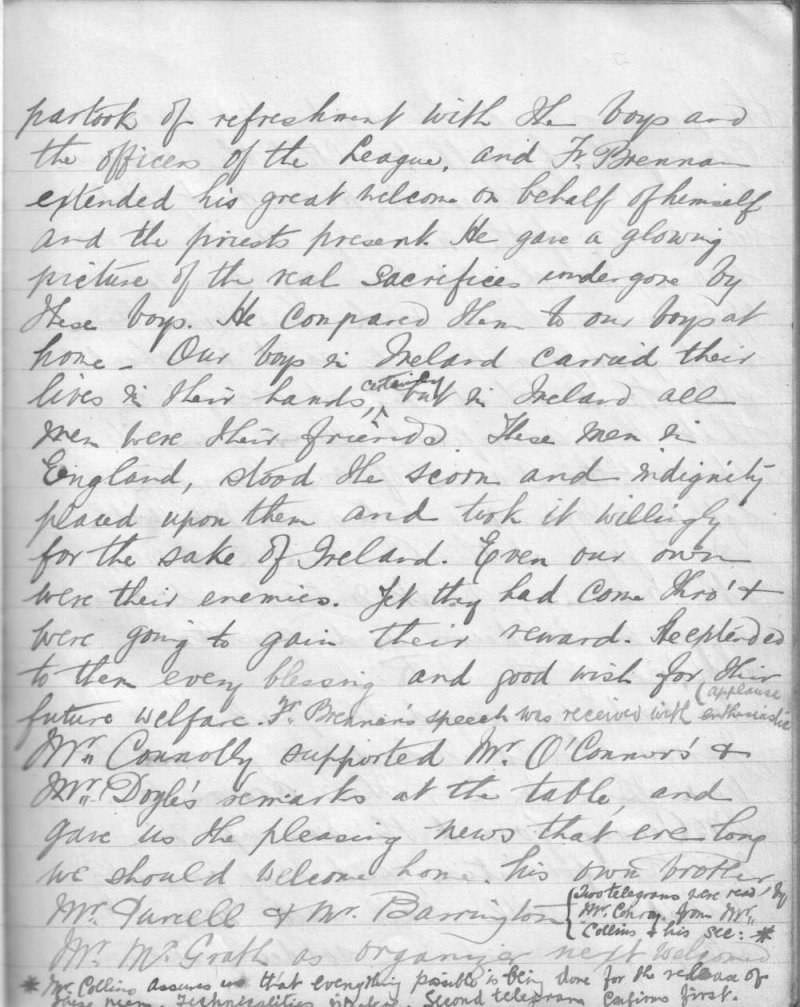 partook of refreshment with the boys and
the officers of the League, and Fr. Brennan
extended his great welcome on behalf of himself
and the priests present. He gave a glowing
picture of the real sacrifices undergone by
these boys. He compared them to our boys at
home - Our boys in Ireland carried their
lives in their hands, certainly but in Ireland all
men were their friends. These men in
England, stood the scorn and indignity
placed upon them and took it willingly
for the sake of Ireland. Even our own
were their enemies. Yet they had come thro' &
were going to gain their reward. He extended
to them every blessing and good wish for their
future welfare. Fr. Brennan's speech was received with enthusiastic (applause
Mr. Connolly supported Mr. O'Connor's &
Mr. Doyle's remarks at the table, and
gave us the pleasing news that ere long
we should welcome home his own brother
Mr. Purcell & Mr. Barrington
Two telegrams were read by
Mr. Conroy from Mr.
Collins & his sec: *
Mr. McGrath as organizer next welcomed
* Mr. Collins assures us that everything possible is being done for the release of
these men. Technicalities Second telegram confirms first.